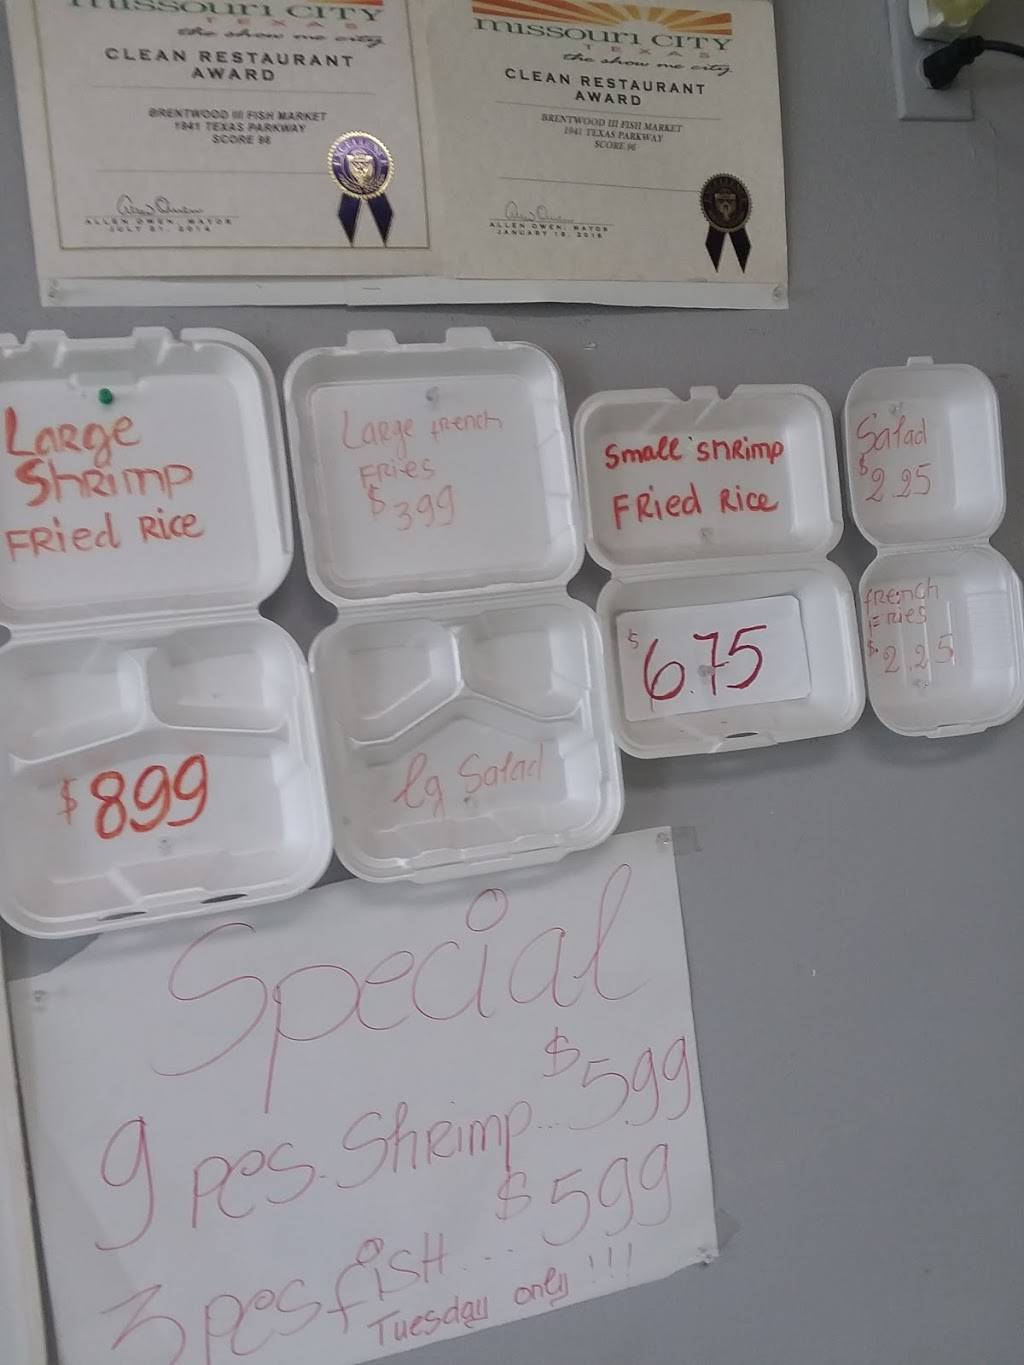 missouri CITY
TEXAS
the show me city
CLEAN RESTAURANT
AWARD
BRENTWOOD III FISH MARKET
1941 TEXAS PARKWAY
SCORE 96
ALLEN OWEN, MAYOR
JULY 21, 2014
missouri CITY
TEXAS
the show me city
CLEAN RESTAURANT
AWARD
BRENTWOOD III FISH MARKET
1941 TEXAS PARKWAY
SCORE 96
ALLEN OWEN, MAYOR
Large
Shrimp
FRied Rice
$899
Large french
FRies
$399
lg Salad
Small shrimp
FRied Rice
$6.75
Salad
$2.25
french
FRies
$2.25
Special
9 pcs. Shrimp... $5.99
3 pcs fish... $599
Tuesday only!!!